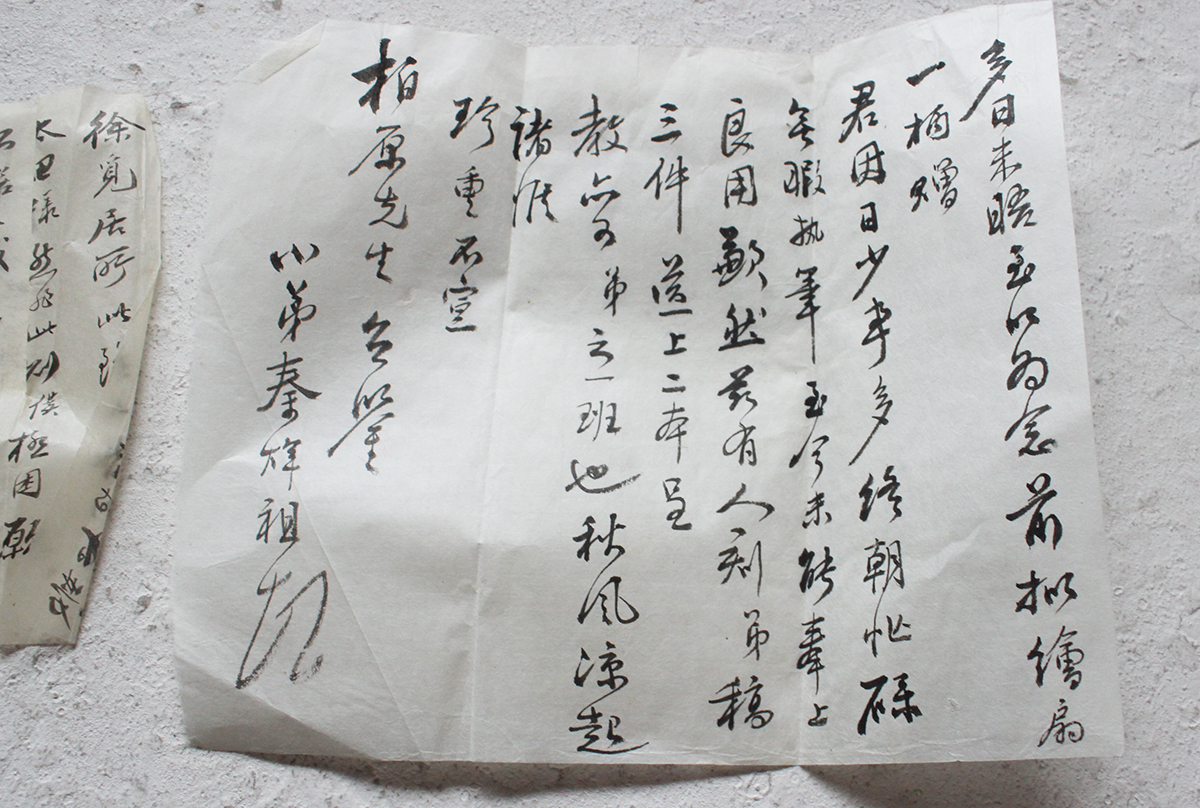 多日未晤至以為念前擬繪扇
一柄贈
君因日少事多终朝忙碌
無暇执筆至今未能奉上
良用歉然兹有人刻弟稿
三件送上二本呈
教亦可弟之一班也秋风凉起
諸惟
珍重不宣
柏原先生台鉴
小弟秦祥祖
徐覓居所此
太田樣然此劝候極困